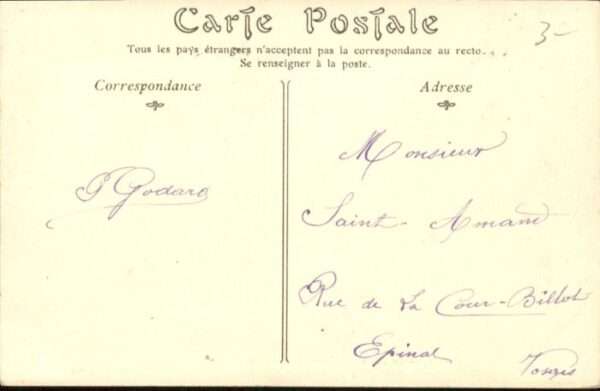 Carte Postale
3-
Tous les pays étrangers n'acceptent pas la correspondance au recto.
Se renseigner à la poste.
Correspondance
Adresse
G Godard
Monsieur
Saint-Amand
Rue de La Cour-Billot
Epinal
Vosges